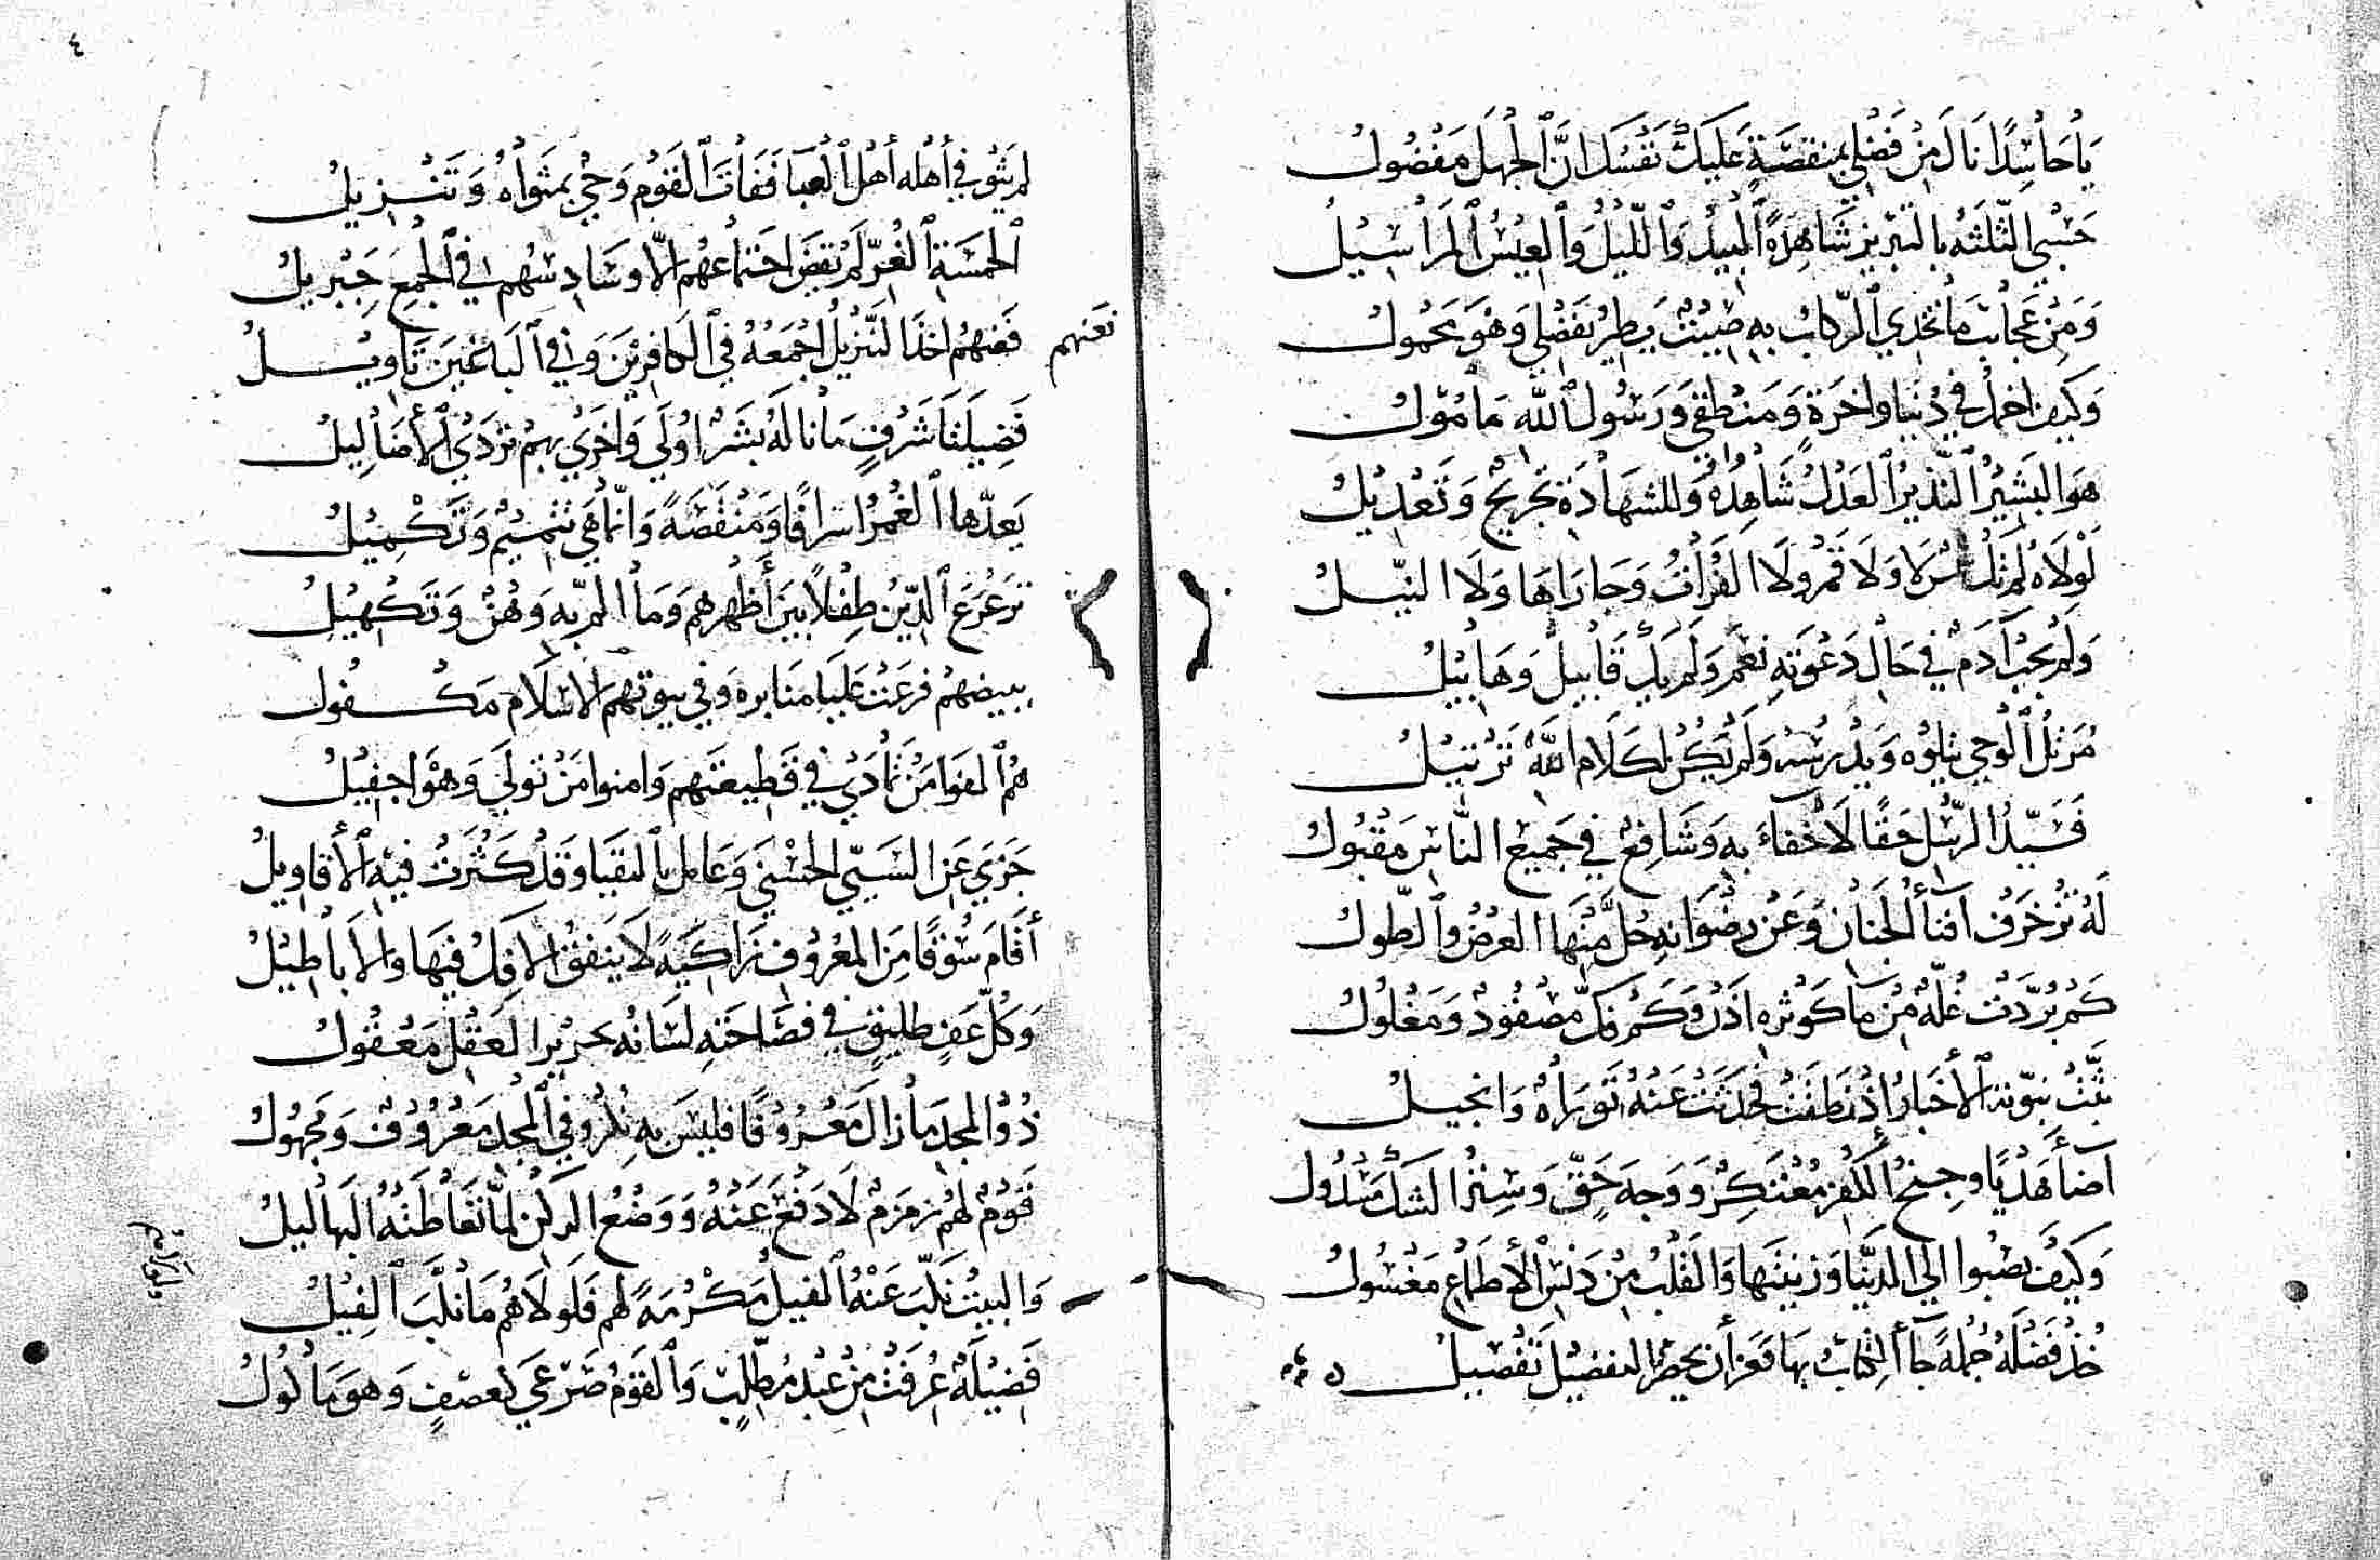 يَا حَاسِدًا نَالَ مِنْ فَضْلِي بِمَنْقَصَةٍ عَلَيْكَ نَفْسَكَ إِنَّ ٱلْجَهْلَ مَفْضُولُ
حَسْبِي الثَّلَثَهُ بِالتَبْرِيزِ شَاهِدَةً ٱلْبِيدُ وَٱللَّيْلُ وَٱلْعِيسُ ٱلْمَرَاسِيلُ
وَمِنْ عَجَائِبَ مَا تَخْدِي ٱلرِّكَابُ بِهِ صِيتٌ يَطِيرُ بِفَضْلِي وَهْوَ مَحْمُولُ
وَكَيْفَ اخْمُلُ فِي دُنْيَا وَاخِرَةٍ وَمَنْطِقِي وَرَسُولُ ٱللَّهِ مَأْمُولُ
هُوَ البَشِيْرُ ٱلنَّذِيْرُ ٱلعَدْلُ شَاهِدُهُ وَلِلشَّهَادَةِ تَجْرِيْحٌ وَتَعْدِيْلُ
لَوْلَاهُ لَمْ تَكُ شَمْسٌ لَا وَلَا قَمَرٌ وَلَا الفُرَاتُ وَجَارَاهَا وَلَا النِّيْلُ
وَلَمْ يُجَبْ آدَمٌ فِي حَالِ دَعْوَتِهِ نَعَمْ وَلَمْ يَكُ قَابِيلٌ وَهَابِيلُ
مُرَتِّلُ ٱلْوَحْيِ يَتْلُوهُ وَيَدْرُسُهُ وَلَمْ يَكُنْ لِكَلَامِ اللَّهِ تَرْتِيْلُ
فَسَيِّدُ الرُّسْلِ حَقًّا لَا خَفَاءَ بِهِ وَشَافِعٌ فِي جَمِيْعِ النَّاسِ مَقْبُولُ
لَهُ تُزَخْرَفُ افناءُ الجِنَانِ وَعَنْ رِضْوَانِهِ حُلَّ مِنْهَا العَرْضُ وَٱلطُّولُ
كَمْ بَرَّدَتْ غُلَّةً مِنْ مَاءِ كَوْثَرِهِ اذَنْ وَكَمْ فُكَّ مَصْفُودٌ وَمَغْلُولُ
بَثَّتْ نُبُوَّتَهُ ٱلأَخْبَارُ إِذْ نَطَقَتْ فَحَدَّثَتْ عَنْهُ تَوْرَاةٌ وَانْجِيلُ
أَضَاءَ هَدْيًا وَجِنْحُ الكُفْرِ مُعْتَكِرٌ وَوَجْهَ حَقٍّ وَسِتْرُ الشَكِّ مَسْدُولُ
وَكَيْفَ يَصْبُوا إِلَى الدُّنْيَا وَزِينَتِهَا وَالقَلْبُ مِنْ دَنَسِ ٱلأَطْمَاعِ مَغْسُولُ
خُذْ فَضْلَهُ جُمْلَةً جَاءَ ٱلكِتَابُ بِهَا فَعَزَّ أَنْ يَحْصُرَ التَفْضِيلَ تَفْصِيلُ
٤
لَمْ يَثْوِ فِي أَهْلِهِ أَهْلُ ٱلْعَبَا فَفَاتَ ٱلْقَوْمَ وَحْيٌ بِمَثْوَاهُ وَتَنْزِيلُ
ٱلْخَمْسَةِ ٱلْغُرِّ لَمْ يُقْضَ اجْتِمَاعُهُمُ إِلَّا وَسَادِسُهُمْ فِي ٱلْجَمْعِ جِبْرِيلُ
فَعَنْهُمْ اخِذَ التَّنْزِيْلُ اجْمَعُهُ فِي ٱلكَافِرِيْنَ وَفِي ٱلبَاغِيْنَ تَأْوِيْلُ
فعنهم
فَضِيلَتَا شَرَفٍ مَا نَالَهُ بَشَرٌ اوْلَى وَاخْرَى بِهِمْ تُرْدَى ٱلأَضَالِيلُ
يَعُدُّهَا ٱلغُمْرُ اسْرَافًا وَمَنْقَصَةً وَانَّمَا هِيَ تَتْمِيْمٌ وَتَكْمِيْلُ
تَرَعْرَعَ ٱلدِّيْنُ طِفْلًا بَيْنَ أَظْهُرِهِمْ وَمَا المَّ بِهِ وَهْنٌ وَتَكْهِيْلُ
بِبِيضِهِمْ فُرِعَتْ عَلْيَا مَنَابِرِهِ وَفِي بُيُوتِهِمُ الإسْلَامُ مَكْفُولُ
هُمُ ٱلفَوَا مَنْ تَمَادَى فِي قَطِيعَتِهِمْ وَامنوا مَنْ تَوَلَّى وَهْوَ اجْفِيْلُ
جَزَى عَنِ السَيِّئِ الحُسْنَى وَعَامَلَ بِٱلبُقْيَا وَقَدْ كَثُرَتْ فِيْهِ ٱلأَقَاوِيلُ
أَقَامَ سُوْقًا مِنَ المَعْرُوْفِ زَاكِيَةً لَا يَنْفُقُ الإفْكُ فِيْهَا وَالأَبَاطِيْلُ
وَكُلُّ عَفٍّ طَلِيقٍ فِي فَصَاحَتِهِ لِسَانُهُ بِحَرِيْرِ العَقْلِ مَعْقُولُ
ذُوْ المَجْدِ مَا زَالَ مَعْرُوْفًا فَلَيْسَ بِهِ نُكْرٌ وَفِي ٱلمَجْدِ مَعْرُوْفٌ وَمَجْهُولُ
قَوْمٌ لَهُمْ زَمْزَمٌ لَا دَفْعَ عَنْهُ وَوَضْعُ الرُكْنِ لَمَّا تَعَاطَتْهُ البَهَالِيلُ
وَالبَيْتُ نَكَّبَ عَنْهُ ٱلفِيلُ مَكْرُمَةً لَهُمْ فَلَوْلَاهُمُ مَا نَكَّبَ ٱلفِيْلُ
فَضِيْلَةٌ عُرِفَتْ مِنْ عَبْدِ مُطَّلِبٍ وَٱلقَوْمُ صَرْعَى كَعَصْفٍ وَهْوَ مَأْكُولُ